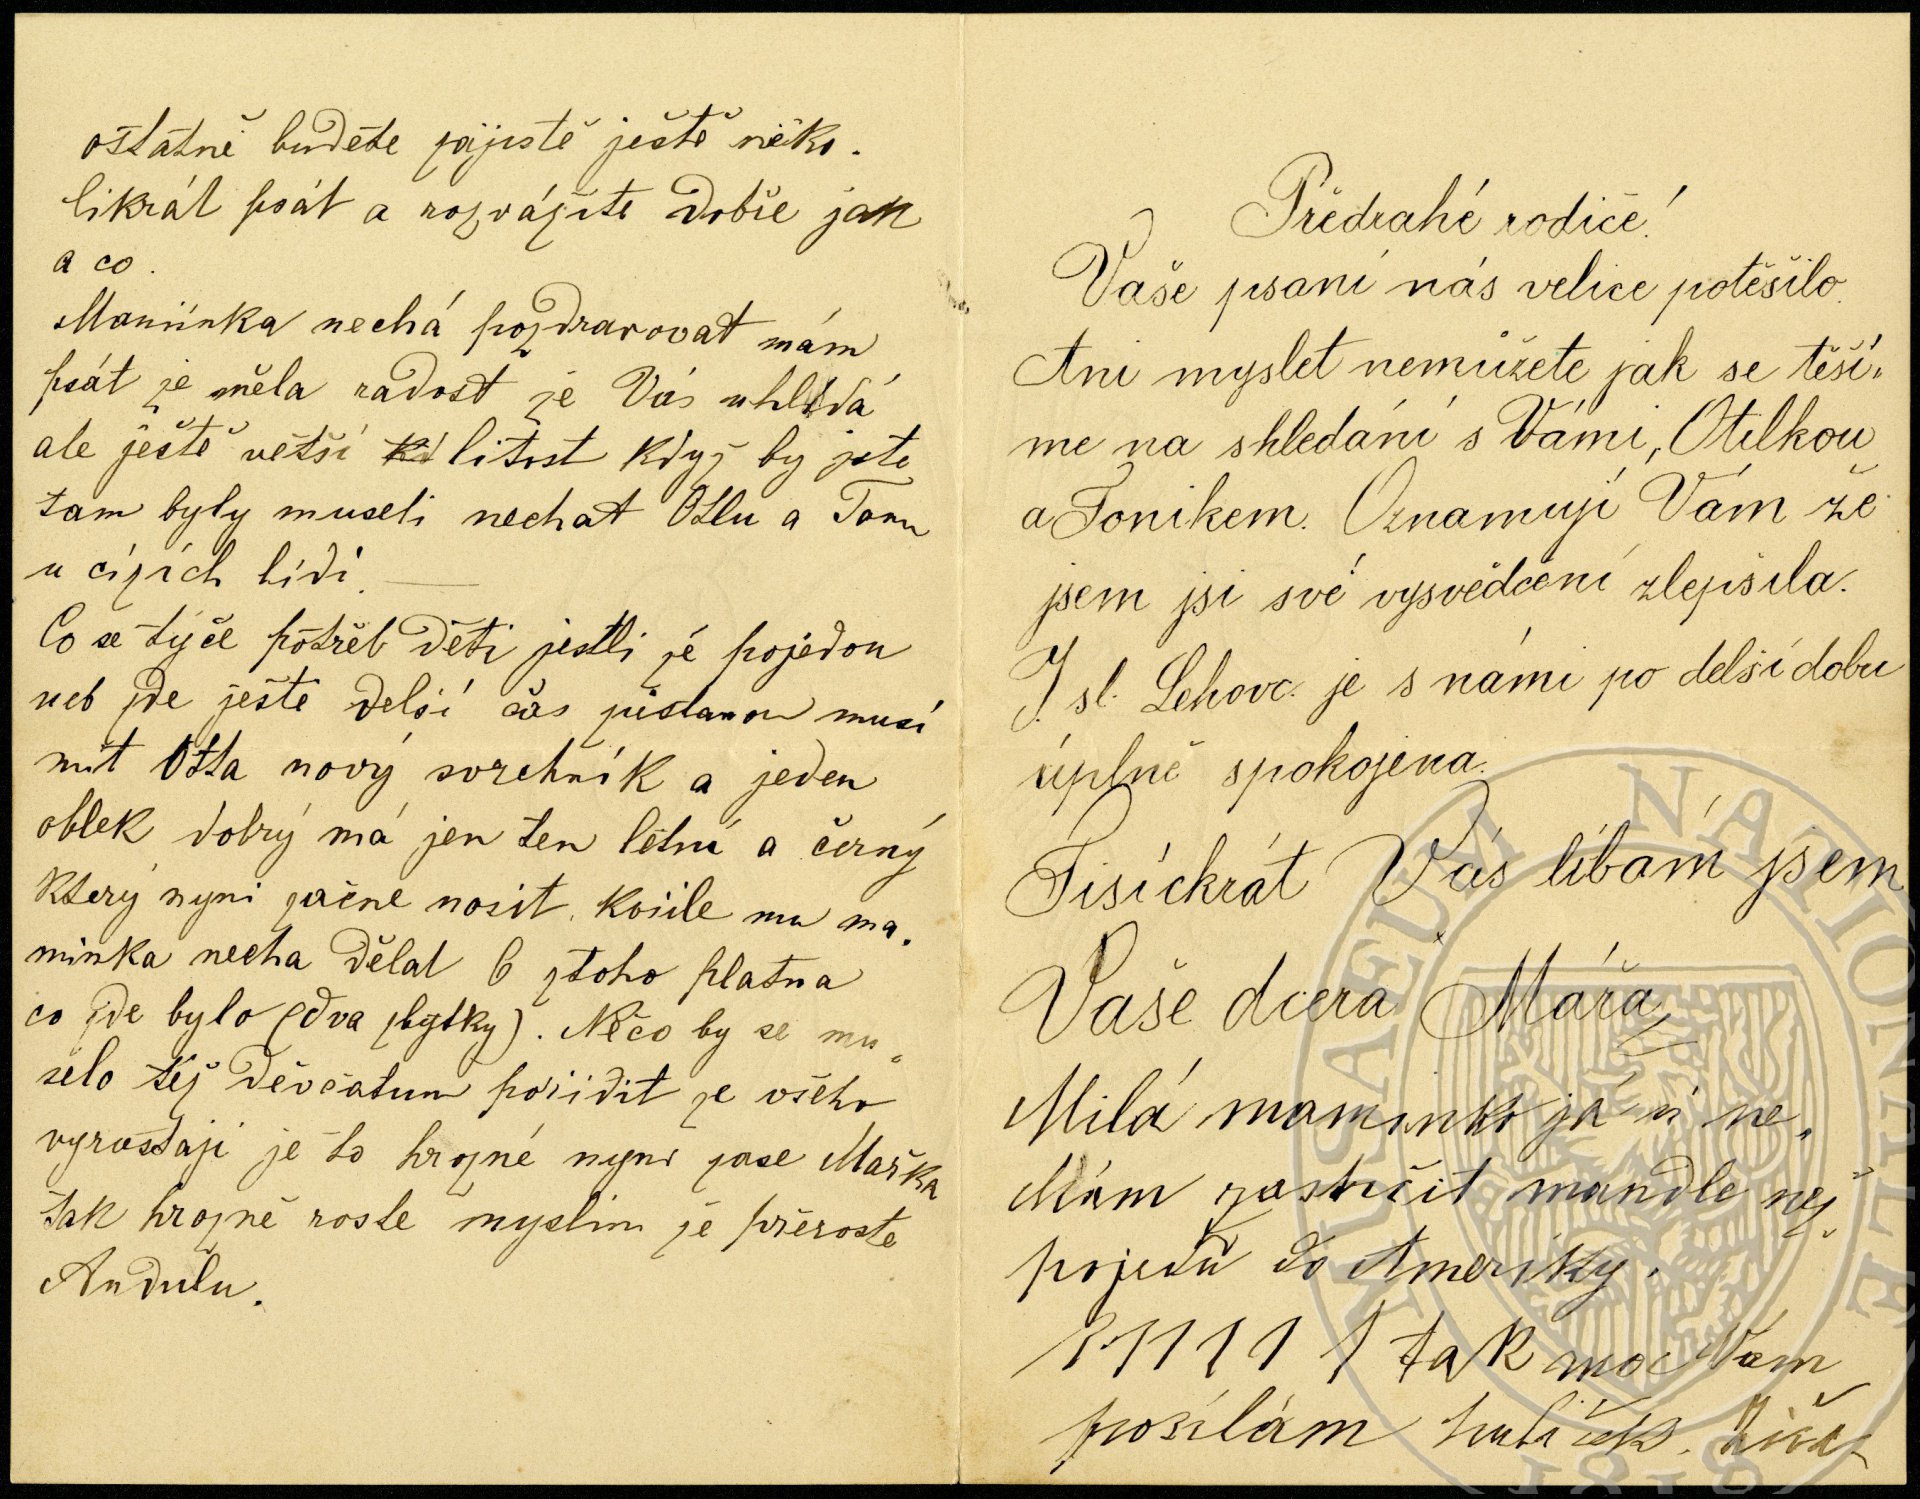 ostatně budete zajisté ještě něko-
likrát psát a rozvážíte dobře jak
a co.
Maminka nechá pozdravovat mám
psát že měla radost že Vás uhlídá
ale ještě větší lítost když by jste
tam byly museli nechat Ottu a Tonu
u cizích lidí.
Co se týče potřeb dětí jestli že pojedou
neb zde ještě delší čas zůstanou musí
mít Otta nový svrchník a jeden
oblek dobrý má jen ten letní a černý
který nyní začne nosit. košile mu ma-
minka nechá dělat 6 ztoho platna
co zde bylo (dva zbytky). Něco by se mu-
selo též děvčatum pořídit ze všeho
vyrustají je to hrozné nyní zase Mařka
tak hrozně roste myslím že přeroste
Andulu.
Předrahé rodiče!
Vaše psaní nás velice potěšilo.
Ani myslet nemůžete jak se těší-
me na shledání s Vámi, Otilkou
a Toníkem. Oznamuji Vám že
jsem jsi své vysvědčení zlepšila.
I sl. Lehovc. je s námi po delší dobu
úplně spokojena.
Tisíckrát Vás líbám jsem
Vaše dcera Mářa
Milá maminko já si ne-
Mám zastřičit mandle než
pojedu do Ameriky.
1 1 1 1 1 1 1 tak moc Vám
posílám hubiček.
MUSAEUM NATIONALE
1818